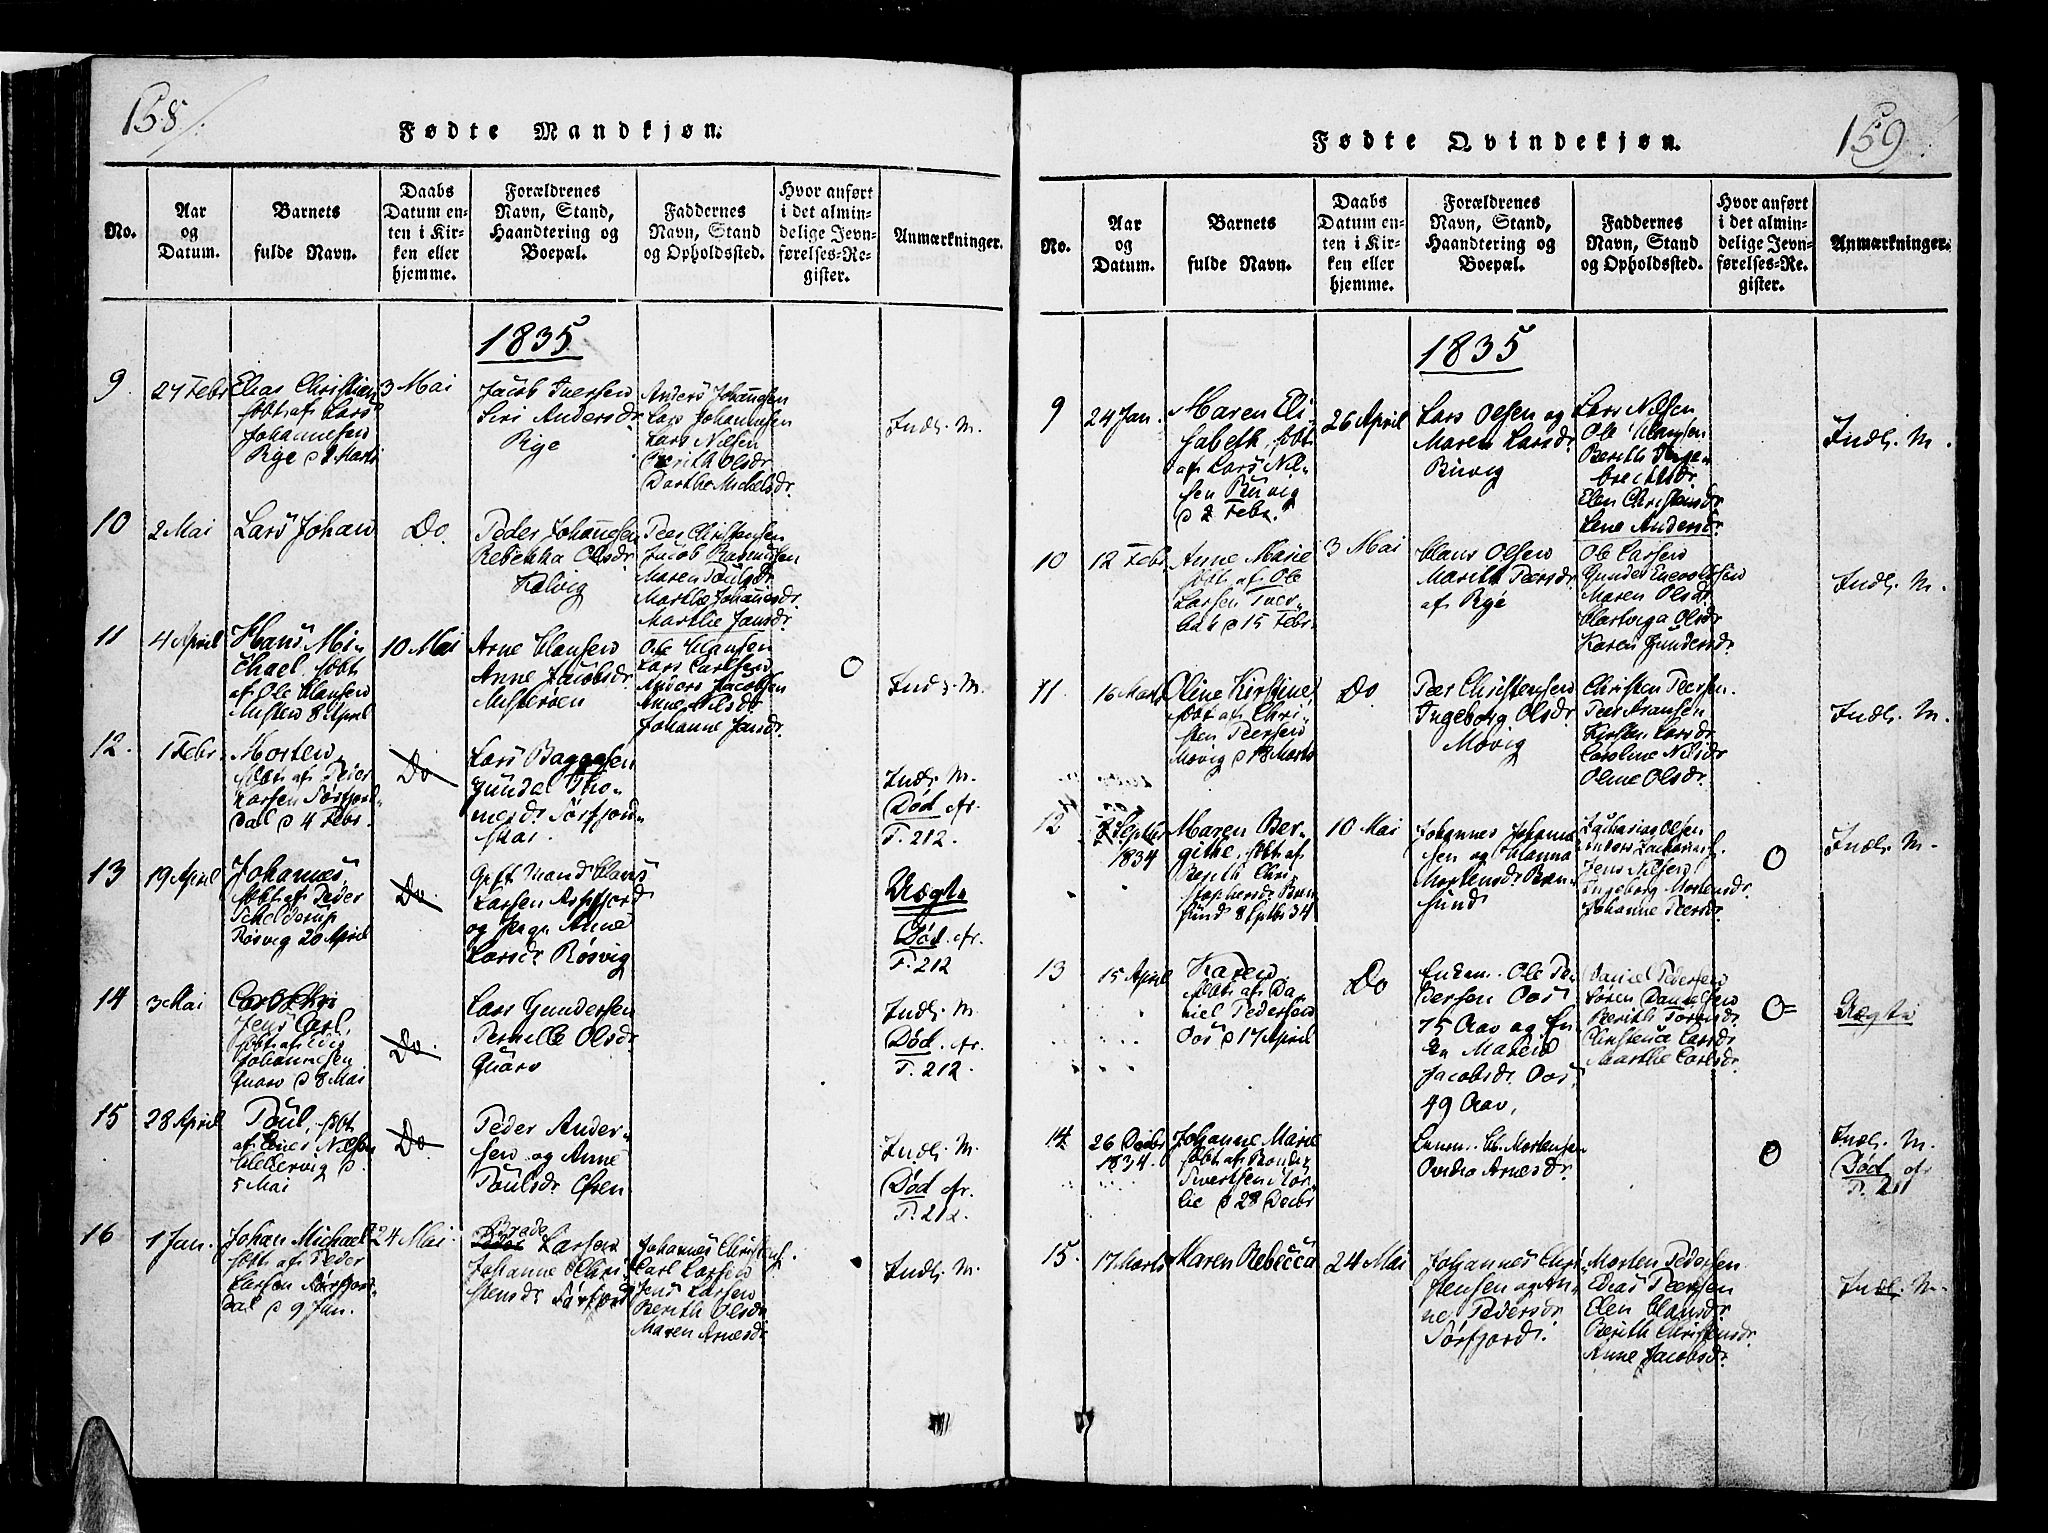 158/.
Fødte Mandkjøn.
No.
Aar
og
Datum.
Barnets
fulde Navn.
Daabs
Datum en-
ten i Kir-
ken eller
hjemme.
Forældrenes
Navn, Stand,
Haandtering og
Boepæl.
Faddernes
Navn, Stand
og Opholdssted.
Hvor anført
i det almin-
delige Jevn-
førelses-Re-
gister.
Anmærkninger.
1835
9
27 Febr
Elias Christian
døbt af Lars
Johannesen
Rye d
Marts
3 Mai
Jacob Iversen
Siri Andersdr
Rye
Anders Johannesen
Lars Johannesen
Lars Nilsen
Berith Olsdr
Dorthe Mickelsdr.
Indl. M.
10
2 Mai
Lars Johan
Do.
Peder Johannesen
Rebekka Olsdr
Kalvig
Peer Christensen
Jacob Rasmusen
Maren Poulsdr
Marthe Johannesdr.
Marthe Jansdr.
11
4 April
Hans Mi-
chael, døbt
af Ole Hansen
Misten 8 April
10 Mai
Arne Hansen
Anne Jacobsdr.
Misterøen
Ole Hansen
Lars Carlsen
Anders Jacobsen
Anne Nilsdr
Johanne Jansdr.
O
Indl. M.
12.
1 Febr.
Morten
døbt af Peder
Larsen Sørfjord-
dal d 4 Febr.
Do
Lars Baggesen
Gundel Tho-
mesdr Sørfjord-
Indl. M.
Død cfr.
P. 212.
13
19 April
Johannes
døbt af Peder
Schelderup
Røsvig 20 April
Do.
Gift Mand Claus
Larsen
og Anne
Larsdr Røsvig
Uægte
Død. cfr.
P. 212
14
3 Mai
Carl Chri
Jens Carl,
døbt af
Johannesen
d 8 Mai
Do.
Lars Gundersen
Pernille Olsdr
Indl. M.
Død. cfr.
P. 212.
15
28 April
Poul, døbt
af Enes Nilsen
d.
5 Mai
Do.
Peder Ander-
sen og Anne
Poulsdr
Indl. M.
Død cfr.
P. 212.
16
1 Jan.
Johan Michael
døbt af Peder
Larsen Sørfjord-
dal d 9 Jan.
24 Mai.
Brade
Larsen
Johanne Chri-
stensdr Sørfjord
Johannes Christens.
Carl Larsen
Jens Larsen
Berith Olsdr
Maren Arnesdr
Indl. M.
159
Fødte Qvindekjøn.
No.
Aar
og
Datum.
Barnets
fulde Navn.
Daabs
Datum en-
ten i Kir-
ken eller
hjemme.
Forældrenes
Navn, Stand,
Haandtering og
Boepæl.
Faddernes
Navn, Stand
og Opholdssted.
Hvor anført
i det almin-
delige Jevn-
førelses-Re-
gister.
Anmærkninger.
1835
9
24 Jan.
Maren Eli-
sabeth, døbt
af Lars Nil-
sen Buvig
d 2 Febr.
26 April
Lars Olsen og
Maren Larsdr
Buvig
Lars Nilsen
Ole Hansen
Berith Inge-
brechtsdr
Elen Christensdr
Lene Andersdr.
Indl. M.
10
12 Febr
Anne Marie
døbt af Ole
Larsen Tver-
bak d 15 Febr.
3 Mai
Hans Olsen
Marith Peersdr
af Rye
Ole Larsen
Gunder Enevoldsen
Maren Olsdr
Hartviga Olsdr
Karen Gundersdr.
Indl. M.
11.
16 Marts
Oline Kirstine
døbt af Chri-
sten Peersen
Movig d 18 Marts
Do
Peer Christensen
Ingeborg Olsdr
Movig
Christen Peersen.
Peer Aransen
Kirsten Larsdr
Caroline Nilsdr
Oline Olsdr.
Indl. M.
12
8 Septbr
1834
Maren Ber-
githe, døbt af
Berith Chri-
stophersdr Bren-
sund 8 Septbr 34
10 Mai
Johannes Johanne-
sen og Hanna
Mortensdr Bren-
sund
Zacharias Olsen
Anders Zacharias.
Jens Nilsen
Ingeborg Mortensdr.
Johanne Peersdr.
O
Indl. M.
13
15 April
Karen
døbt af Da-
niel Pedersen
Oos d 17 April
Do
Enkem. Ole Pe-
dersen Oos
75 Aar og En-
ke Maren
Jacobsdr Oos,
49 Aar,
Daniel Pedersen
Søren Danielsen
Berith Sørensdr.
Christence Larsdr
Marthe Carlsdr.
O=
Uægte
14
26 Decbr
1834.
Johanne Marie
døbt af
Sivertsen Mor-
lie d 28 Decbr
Mortensen
Arnesdr.
O
Indl. M.
Død cfr
P. 211
15.
17 Marts
Maren Rebecca
24 Mai
Johannes Chri-
stensen og An-
ne Pedersdr
Sørfjord.
Morten Pedersen
Elias Peersen
Elen Hansdr
Berith Christensdr.
Anne Jacobsdr.
Indl. M.